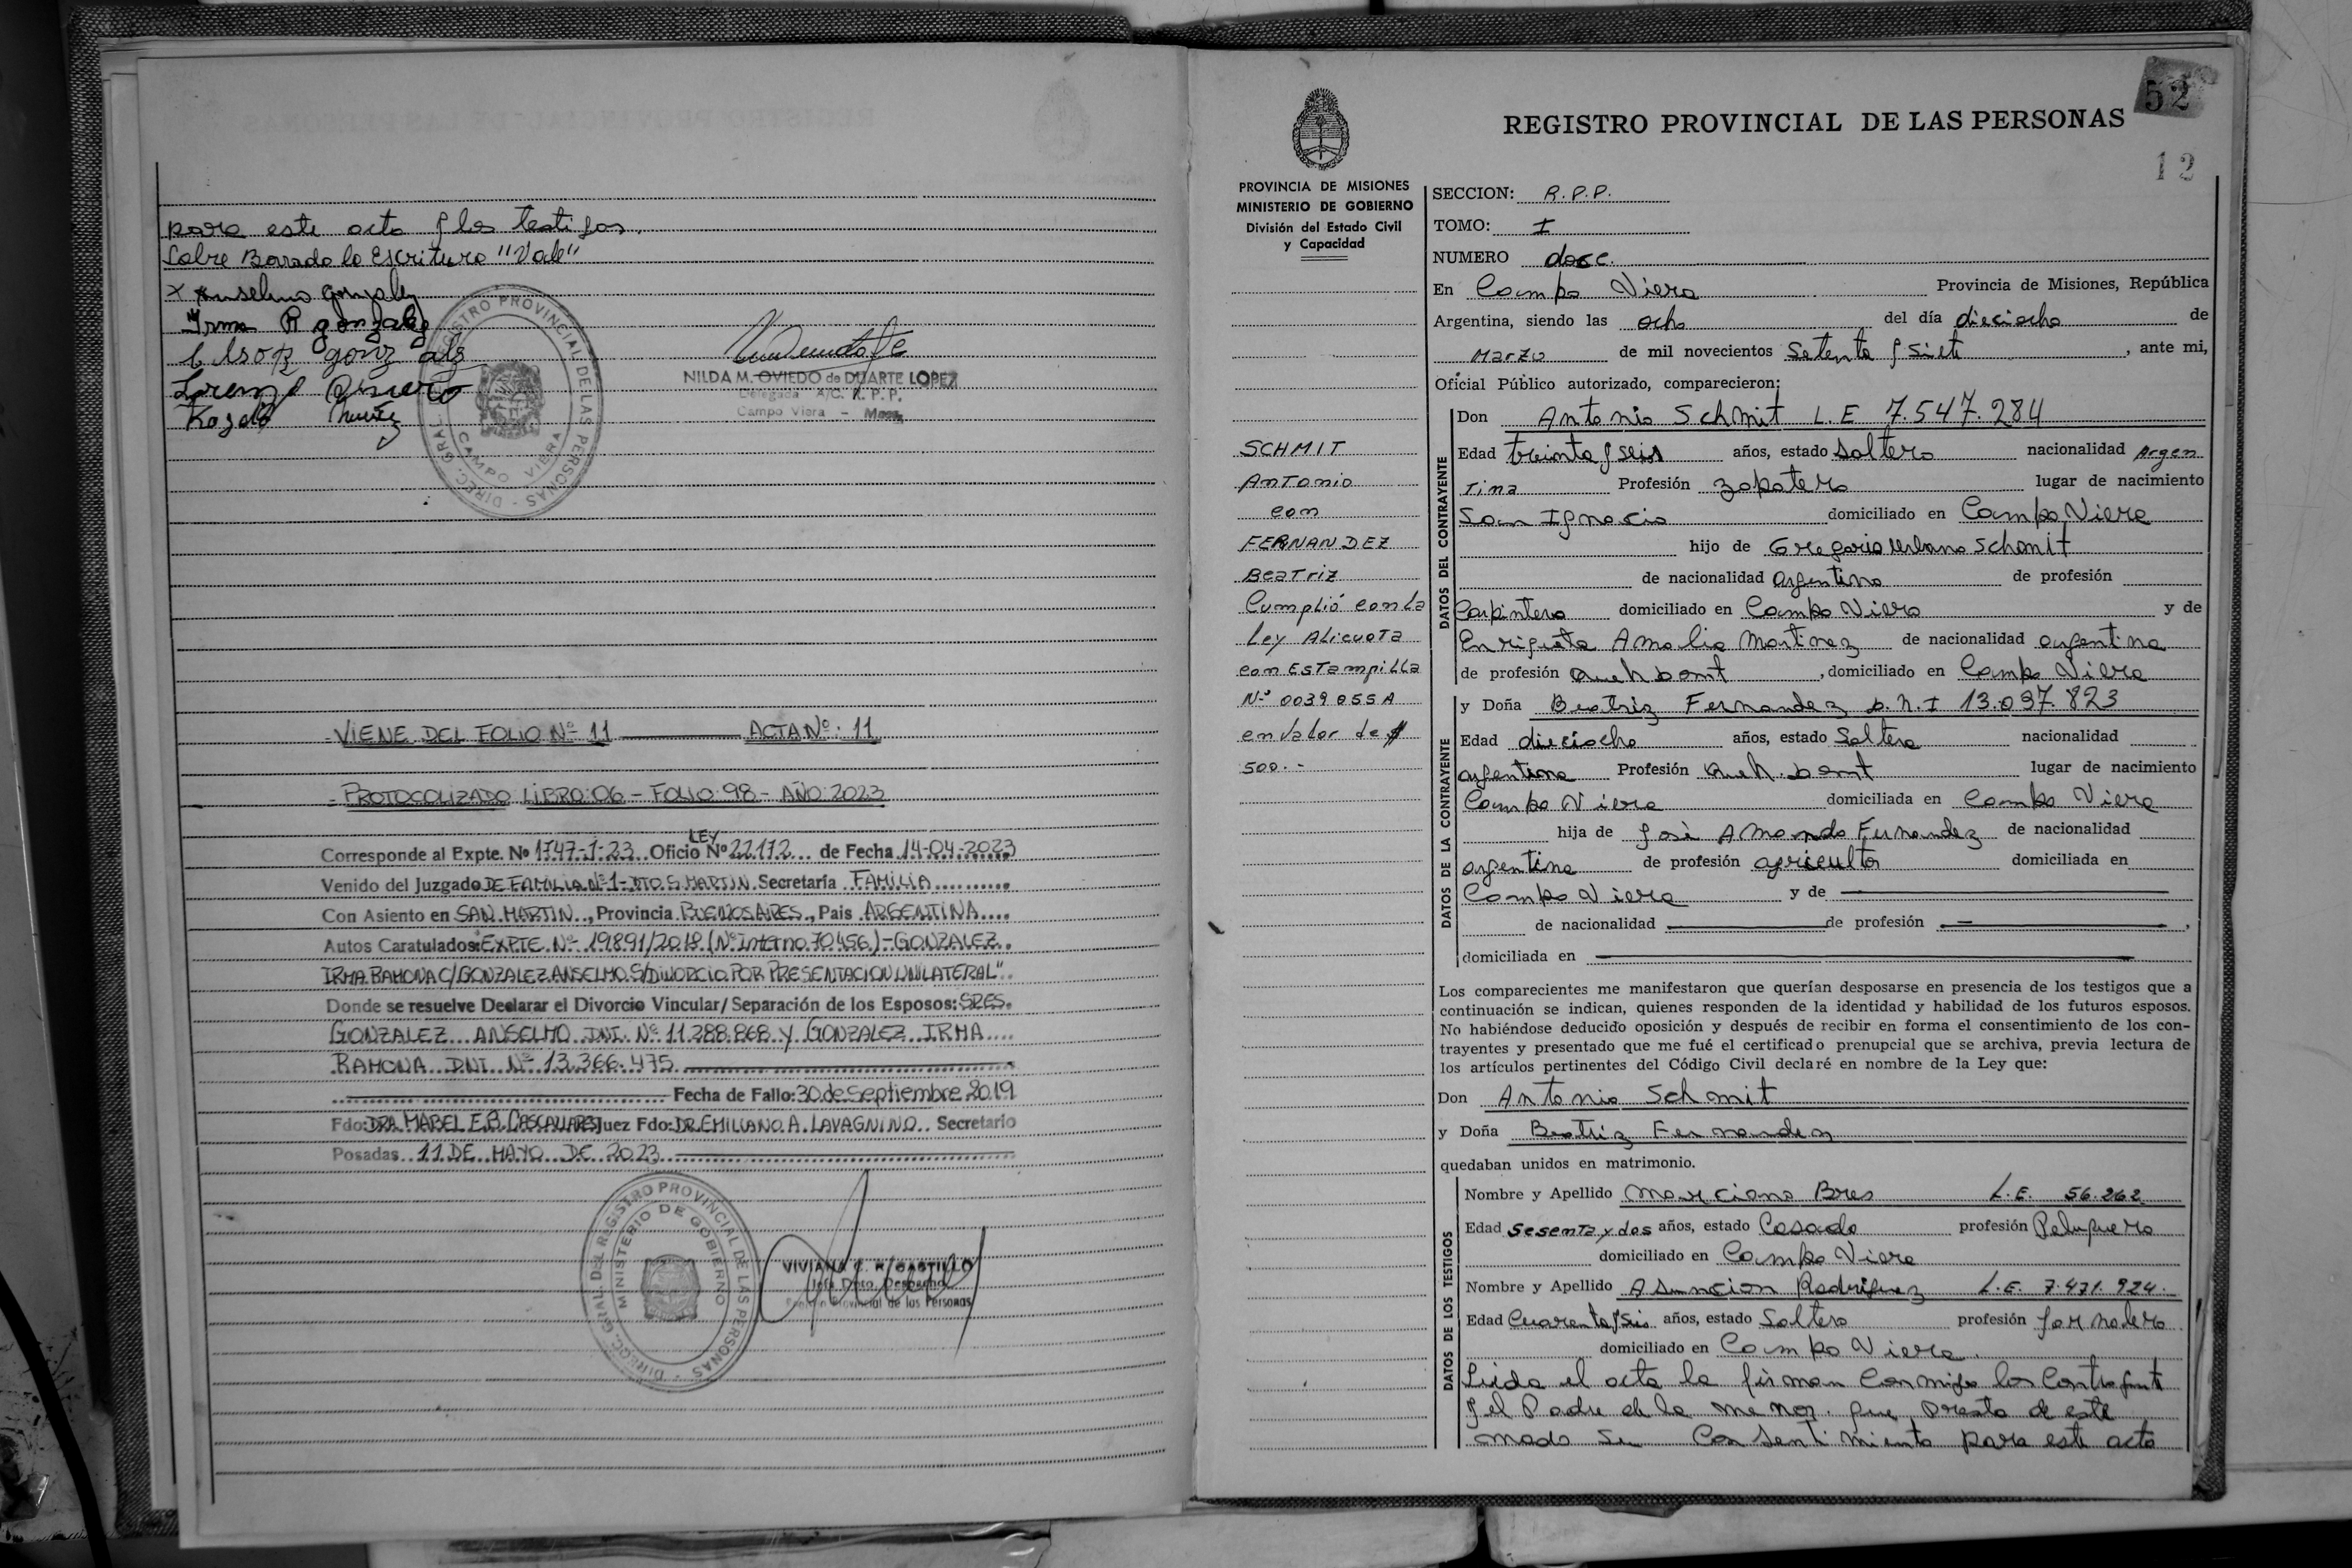 para este acto y los testigos.
Sobre Borrado la Escritura "Vale"
x Anselmo gonzalez
Irma R gonzalez
gonz
Lorenzo
NILDA M. OVIEDO de DUARTE LOPEZ
Delegada A/C. R. P. P.
Campo Viera - Mnes.
DIREC. GRAL. REGISTRO PROVINCIAL DE LAS PERSONAS
CAMPO VIERA
- VIENE DEL FOLIO Nº 11 ACTA Nº: 11
- PROTOCOLIZADO LIBRO: 06 - FOLIO: 98 - AÑO: 2023
LEY
Corresponde al Expte. Nº 1747-J-23 Oficio Nº 22172 de Fecha 14-04-2023
Venido del Juzgado DE FAMILIA Nº 1 - DTO. S. MARTIN. Secretaría FAMILIA
Con Asiento en SAN MARTIN, Provincia BUENOS AIRES, Pais ARGENTINA
Autos Caratulados: EXPTE. Nº 19891/2018 (Nº Interno 70456) - GONZALEZ
IRMA RAMONA C/ GONZALEZ ANSELMO S/ DIVORCIO POR PRESENTACION UNILATERAL"
Donde se resuelve Declarar el Divorcio Vincular/Separación de los Esposos: SRES.
GONZALEZ ANSELMO DNI. Nº 11.288.868 Y GONZALEZ IRMA
RAMONA DNI. Nº 13.366.475
Fecha de Fallo: 30 de Septiembre 2019
Fdo: DRA. MABEL E.B. CASCALLARES Juez Fdo: DR. EMILIANO A. LAVAGNINO Secretario
Posadas 11 DE MAYO DE 2023
DIREC. GRAL. DEL REGISTRO PROVINCIAL DE LAS PERSONAS
MINISTERIO DE GOBIERNO
VIVIANA CASTILLO
Jefa Dpto. Despacho
Provincial de las Personas
52
REGISTRO PROVINCIAL DE LAS PERSONAS
12
PROVINCIA DE MISIONES
MINISTERIO DE GOBIERNO
División del Estado Civil
y Capacidad
SCHMIT
Antonio
con
FERNANDEZ
Beatriz
Cumplió con la
Ley Alicuota
con Estampilla
Nº 0039855A
en valor de $
500.-
SECCION: R.P.P.
TOMO: I
NUMERO doce.
En Campo Viera Provincia de Misiones, República
Argentina, siendo las ocho del día dieciocho de
Marzo de mil novecientos Setenta y siete, ante mi,
Oficial Público autorizado, comparecieron:
DATOS DEL CONTRAYENTE
Don Antonio Schmit L.E 7.547.284
Edad treinta y seis años, estado Soltero nacionalidad Argen
tina Profesión zapatero lugar de nacimiento
San Ignacio domiciliado en Campo Viera
hijo de Gregorio Urbano Schmit
de nacionalidad argentino de profesión
Carpintero domiciliado en Campo Viera y de
Enriqueta Amalia Martinez de nacionalidad argentina
de profesión , domiciliado en Campo Viera
DATOS DE LA CONTRAYENTE
y Doña Beatriz Fernandez D.N.I 13.037.823
Edad dieciocho años, estado Soltera nacionalidad
argentina Profesión lugar de nacimiento
Campo Viera domiciliada en Campo Viera
hija de José Amando Fernandez de nacionalidad
argentina de profesión agricultor domiciliada en
Campo Viera y de
de nacionalidad de profesión ,
domiciliada en
Los comparecientes me manifestaron que querían desposarse en presencia de los testigos que a
continuación se indican, quienes responden de la identidad y habilidad de los futuros esposos.
No habiéndose deducido oposición y después de recibir en forma el consentimiento de los con-
trayentes y presentado que me fué el certificado prenupcial que se archiva, previa lectura de
los artículos pertinentes del Código Civil declaré en nombre de la Ley que:
Don Antonio Schmit
y Doña Beatriz Fernandez
quedaban unidos en matrimonio.
DATOS DE LOS TESTIGOS
Nombre y Apellido Marciano Bres L.E. 56.262
Edad Sesenta y dos años, estado Casado profesión Peluquero
domiciliado en Campo Viera
Nombre y Apellido Asuncion Rodriguez L.E. 7.471.924.
Edad Cuarenta y Seis años, estado Soltero profesión Jornalero
domiciliado en Campo Viera.
Leida el acta la firman Conmigo los Contrayent
y el Padre de la menor. que presta de este
modo su Consentimiento para este acto